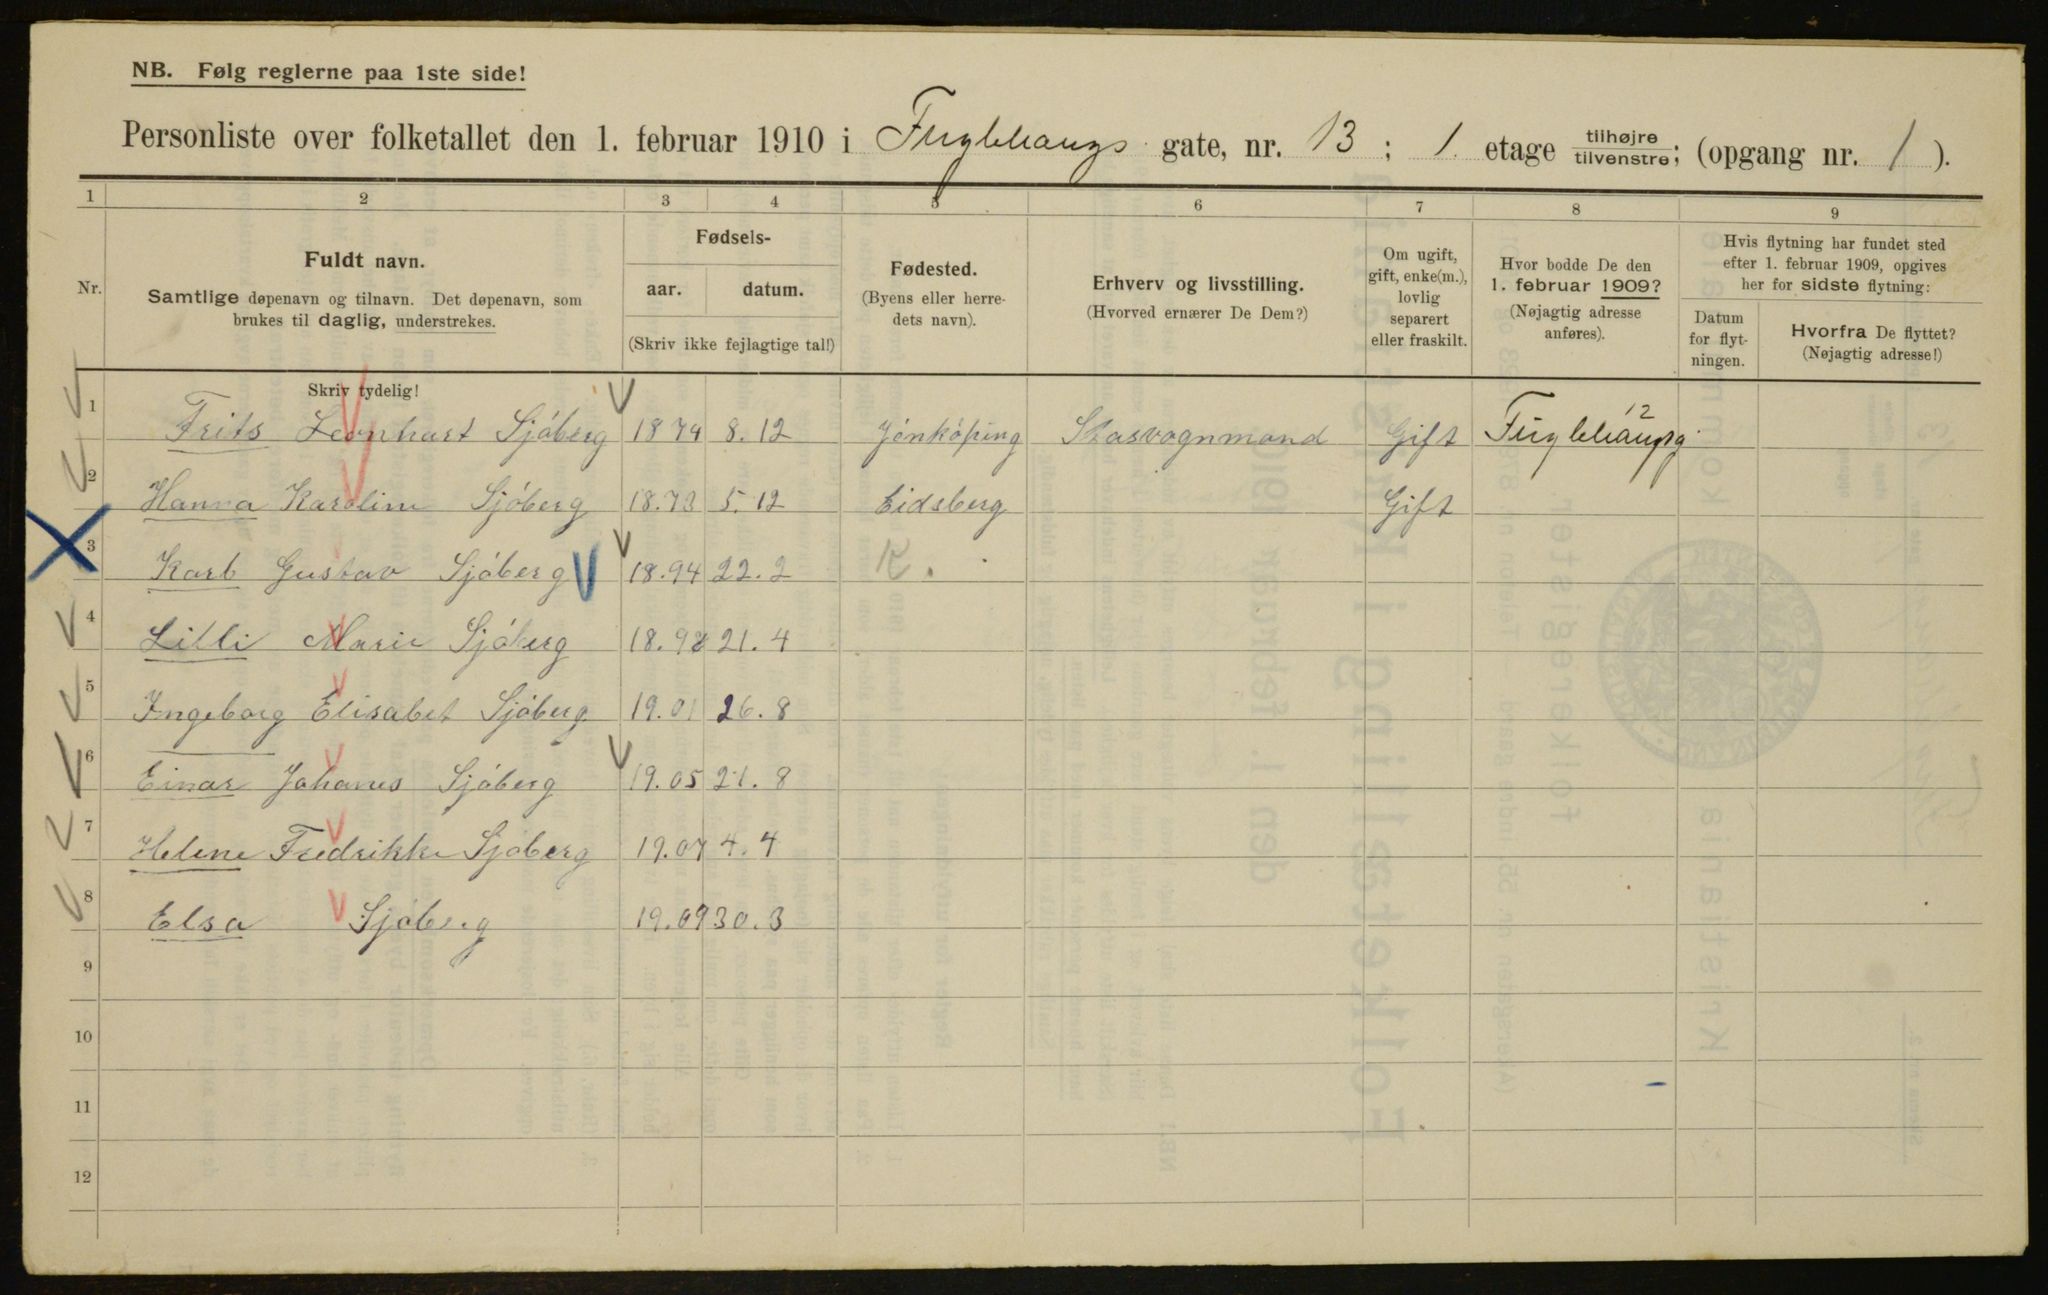 NB. Følg reglerne paa 1ste side!
Personliste over folketallet den 1. februar 1910 i Fuglehaugs gate, nr. 13; 1. etage tilhøjre tilvenstre; (opgang nr. 1).
1 2 3 4 5 6 7 8 9
Nr.
Fuldt navn.
Samtlige døpenavn og tilnavn. Det døpenavn, som
brukes til daglig, understrekes.
Skriv tydelig!
Fødsels-
aar. datum.
(Skriv ikke fejlagtige tal!)
Fødested.
(Byens eller herre-
dets navn).
Erhverv og livsstilling.
(Hvorved ernærer De Dem?)
Om ugift,
gift, enke(m.),
lovlig
separert
eller fraskilt.
Hvor bodde De den
1. februar 1909?
(Nøjagtig adresse
anføres).
Hvis flytning har fundet sted
efter 1. februar 1909, opgives
her for sidste flytning:
Datum
for flyt-
ningen.
Hvorfra De flyttet?
(Nøjagtig adresse!)
1 Frits Leonhart Sjöberg 1874 8.12 Jönköping Stasvognmand Gift Fuglehaugsg 12
2 Hanna Karoline Sjöberg 18.73 5.12 Eidsberg Gift
3 Karl Gustav Sjöberg 18.94 22.2 K.
4 Lilli Marie Sjöberg 18.98 21.4
5 Ingeborg Elisabet Sjöberg 19.01 26.8
6 Einar Johanes Sjöberg 19.05 21.8
7 Helene Fredrikke Sjöberg 19.07 4.4
8 Elsa Sjöberg 19.09 30.3
9
10
11
12